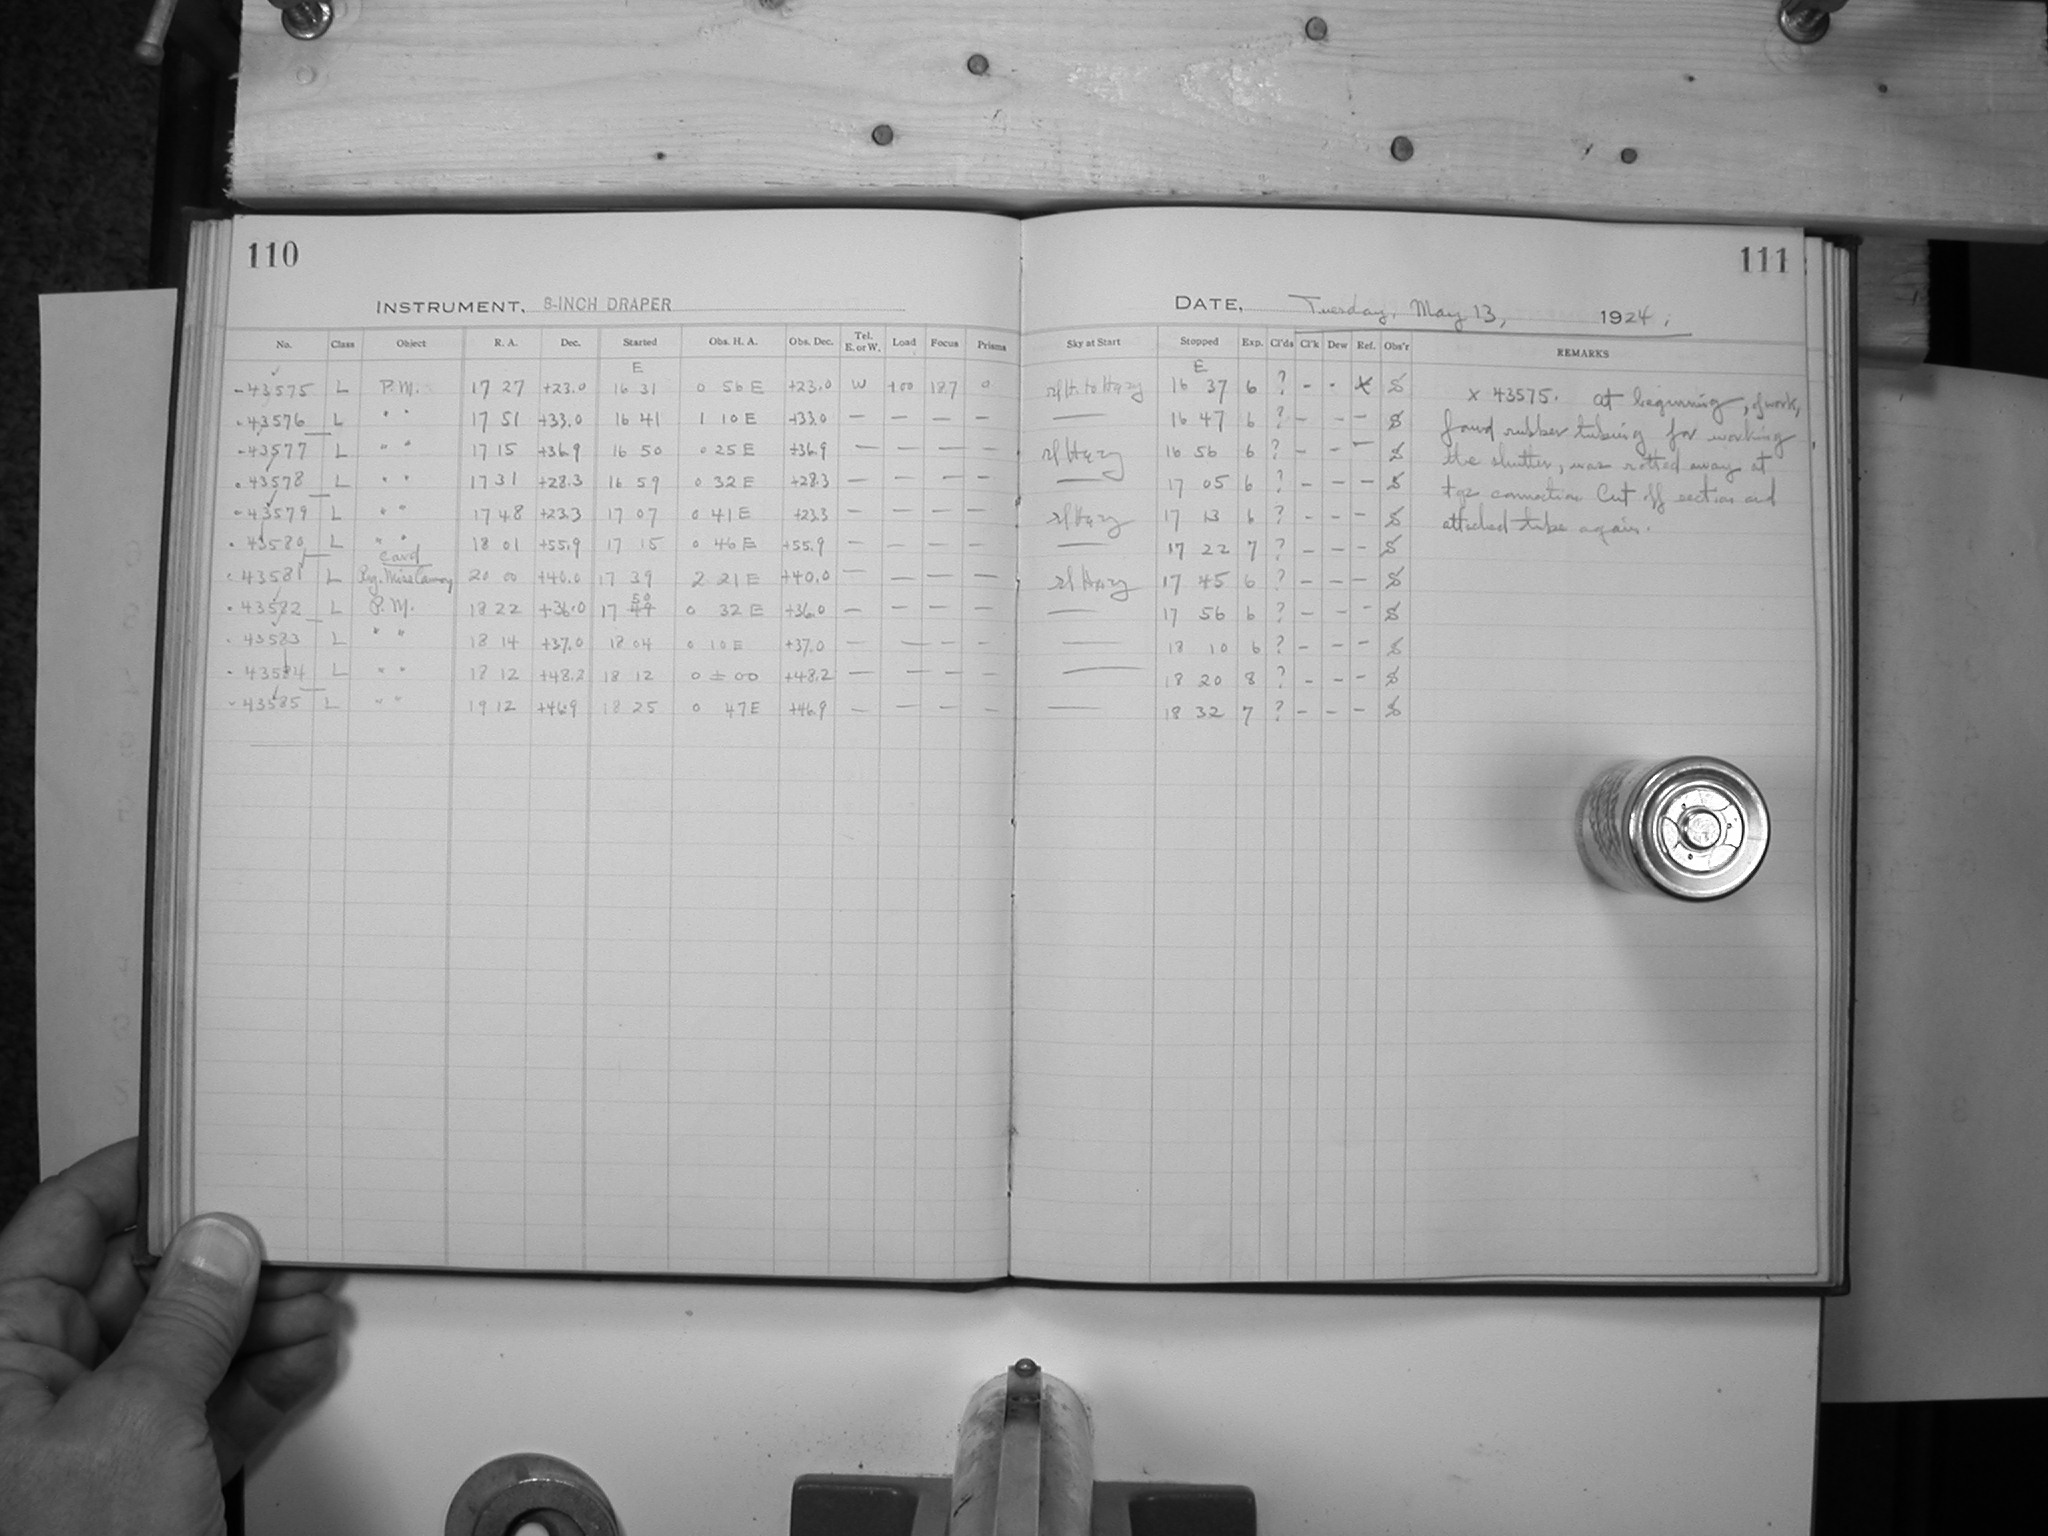 110
111
INSTRUMENT, 8-INCH DRAPER
DATE, Tuesday, May 13, 1924;
No. Class Object R. A. Dec. Started Obs. H. A. Obs. Dec. Tel. E. or W. Load Focus Prisms Sky at Start Stopped Exp. Cl'ds Cl'k Dew Ref. Obs'r REMARKS
E E
-43575 L P.M. 17 27 +23.0 16 31 0 56 E +23.0 W +00 187 0 Hazy 16 37 6 ? - - x S
-43576 L " " 17 51 +33.0 16 41 1 10 E +33.0 — — — — — 16 47 6 ? - - - S
-43577 L " " 17 15 +36.9 16 50 0 25 E +36.9 — — — — Hazy 16 56 6 ? - - - S
43578 L " " 17 31 +28.3 16 59 0 32 E +28.3 — — — — — 17 05 6 ? - - - S
-43579 L " " 17 48 +23.3 17 07 0 41 E +23.3 — — — — Hazy 17 13 6 ? - - - S
43580 L " " 18 01 +55.9 17 15 0 46 E +55.9 — — — — — 17 22 7 ? - - - S
card
43581 L Rg. Miss Cannon 20 00 +40.0 17 39 2 21 E +40.0 — — — — Hazy 17 45 6 ? - - - S
43582 L P.M. 18 22 +36.0 17 49 50 0 32 E +36.0 — — — — — 17 56 6 ? - - - S
43583 L " " 18 14 +37.0 18 04 0 10 E +37.0 — — — — — 18 10 6 ? - - - S
-43584 L " " 18 12 +48.2 18 12 0 ± 00 +48.2 — — — — — 18 20 8 ? - - - S
43585 L " " 19 12 +46.9 18 25 0 47 E +46.9 — — — — — 18 32 7 ? - - - S
x 43575. At beginning, of work,
found rubber tubing for working
the shutter, was rotted away at
top connection Cut off section and
attached tube again.